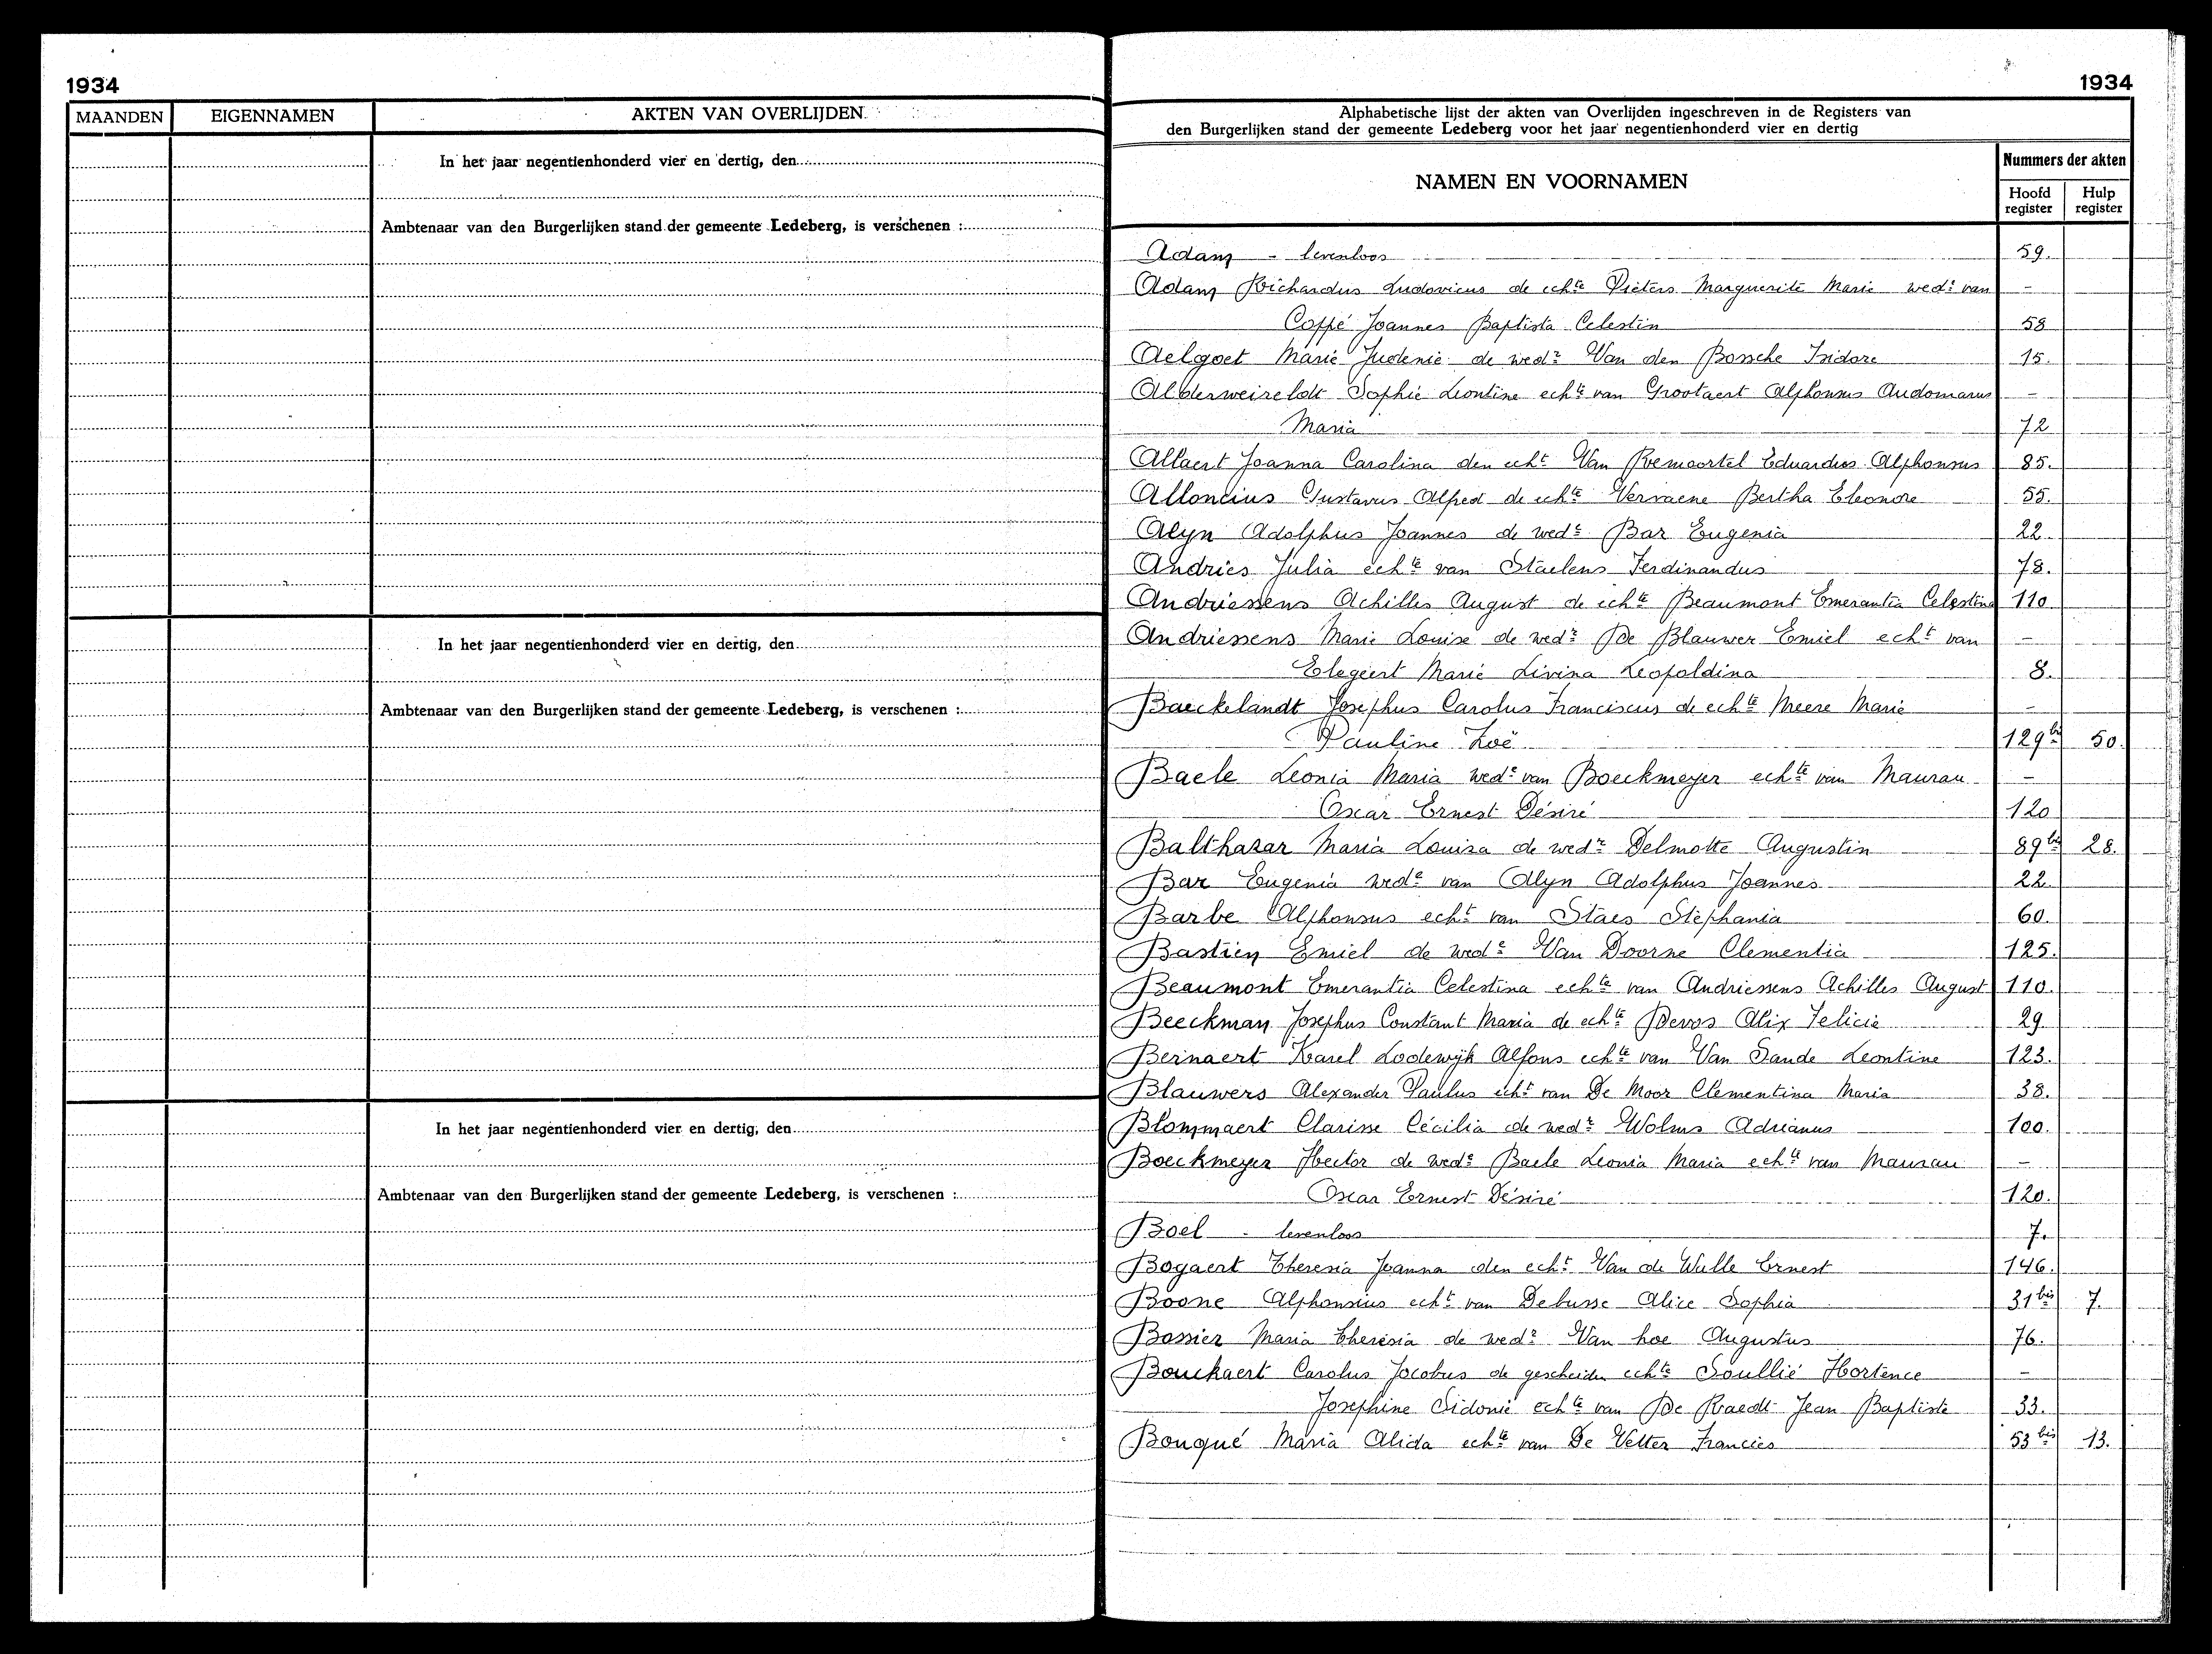 1934
MAANDEN EIGENNAMEN AKTEN VAN OVERLIJDEN
In het jaar negentienhonderd vier en dertig, den
Ambtenaar van den Burgerlijken stand der gemeente Ledeberg, is verschenen :
In het jaar negentienhonderd vier en dertig, den
Ambtenaar van den Burgerlijken stand der gemeente Ledeberg, is verschenen :
In het jaar negentienhonderd vier en dertig, den
Ambtenaar van den Burgerlijken stand der gemeente Ledeberg, is verschenen :
1934
Alphabetische lijst der akten van Overlijden ingeschreven in de Registers van
den Burgerlijken stand der gemeente Ledeberg voor het jaar negentienhonderd vier en dertig
NAMEN EN VOORNAMEN
Nummers der akten
Hoofd register Hulp register
Adam - levenloos 59.
Adam Richardus Ludovicus de echte Pieters Marguerite Marie wede van -
Coppé Joannes Baptista Celestin 58
Aelgoet Marie Judenie de wedr Van den Bossche Isidore 15.
Alderweireldt Sophie Leontine echte van Grootaert Alphonsus Audomarus -
Maria 72
Allaert Joanna Carolina den echt Van Remoortel Eduardus Alphonsus 85.
Alloncius Gustavus Alfred de echte Vervaene Bertha Eleonore 55.
Alyn Adolphus Joannes de wede Bar Eugenia 22.
Andries Julia echte van Staelens Ferdinandus 78.
Andriessens Achilles August de echte Beaumont Emerantia Celestina 110
Andriessens Marie Louise de wedr De Blauwer Emiel echt van -
Elegeert Marie Livina Leopoldina 8.
Baeckelandt Josephus Carolus Franciscus de echte Meere Marie -
Pauline Zoë 129bis 50.
Baele Leonia Maria wede van Boeckmeyer echte van Maurau -
Oscar Ernest Désiré 120
Balthazar Maria Louisa de wedr Delmotte Augustin 89bis 28.
Bar Eugenia wede van Alyn Adolphus Joannes 22.
Barbe Alphonsus echt van Staes Stephania 60.
Bastien Emiel de wede Van Doorne Clementia 125.
Beaumont Emerantia Celestina echte van Andriessens Achilles August 110.
Beeckman Josephus Constant Maria de echte Devos Alix Felicie 29
Bernaert Karel Lodewijk Alfons echte van Van Sande Leontine 123.
Blauwers Alexander Paulus echt van De Moor Clementina Maria 38.
Blommaert Clarisse Cécilia de wedr Wolms Adrianus 100.
Boeckmeyer Hector de wede Baele Leonia Maria echte van Maurau -
Oscar Ernest Désiré 120.
Boel - levenloos 7.
Bogaert Theresia Joanna den echt Van de Walle Ernest 146.
Boone Alphonsius echt van Debusse Alice Sophia 31bis 7.
Bossier Maria Theresia de wedr Van hoe Augustus 76.
Bouckaert Carolus Jocobus de gescheiden echte Soullié Hortence -
Josephine Sidonie echte van De Raedt Jean Baptiste 33.
Bouqué Maria Alida echte van De Vetter Francies 53bis 13.